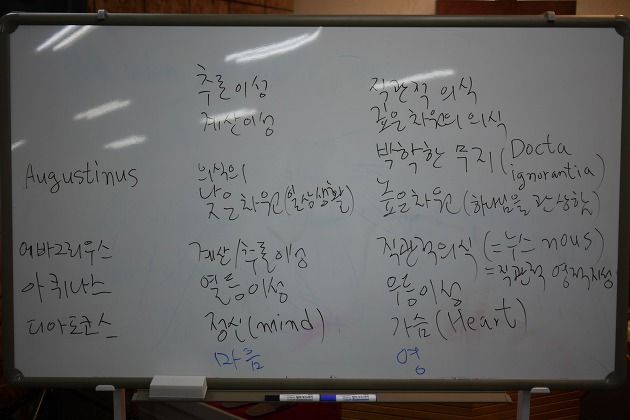 추론이성 직관적 의식
계산이성 깊은차원의 의식
박학한 무지 (Docta ignorantia)
Augustinus 의식의 낮은차원(일상생활) 높은차원(하나님을 관상함)
에바그리우스 계산/추론이성 직관적의식 (=누스 nous)
=직관적 영적지성
아퀴나스 열등이성 우등이성
디아도코스 정신(mind) 가슴(Heart)
마음 영